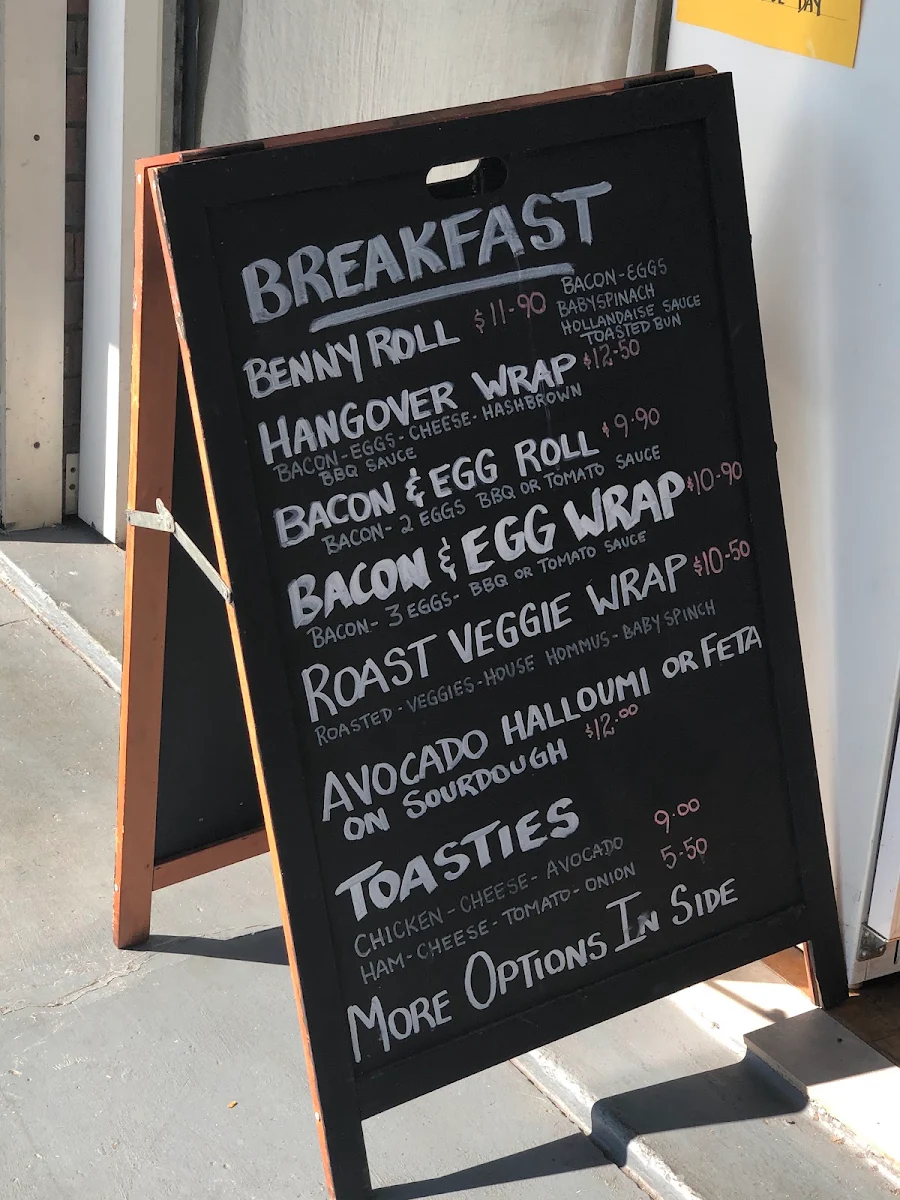 DAY
BREAKFAST
BENNY ROLL $11-90
BACON-EGGS
BABYSPINACH
HOLLANDAISE SAUCE
TOASTED BUN
HANGOVER WRAP $12-50
BACON-EGGS-CHEESE-HASHBROWN
BBQ SAUCE
BACON & EGG ROLL $9-90
BACON- 2 EGGS BBQ OR TOMATO SAUCE
BACON & EGG WRAP $10-90
BACON- 3 EGGS- BBQ OR TOMATO SAUCE
ROAST VEGGIE WRAP $10-50
ROASTED-VEGGIES-HOUSE HOMMUS-BABY SPINCH
AVOCADO HALLOUMI OR FETA
ON SOURDOUGH $12.00
TOASTIES
CHICKEN-CHEESE-AVOCADO 9.00
HAM-CHEESE-TOMATO-ONION 5-50
MORE OPTIONS IN SIDE